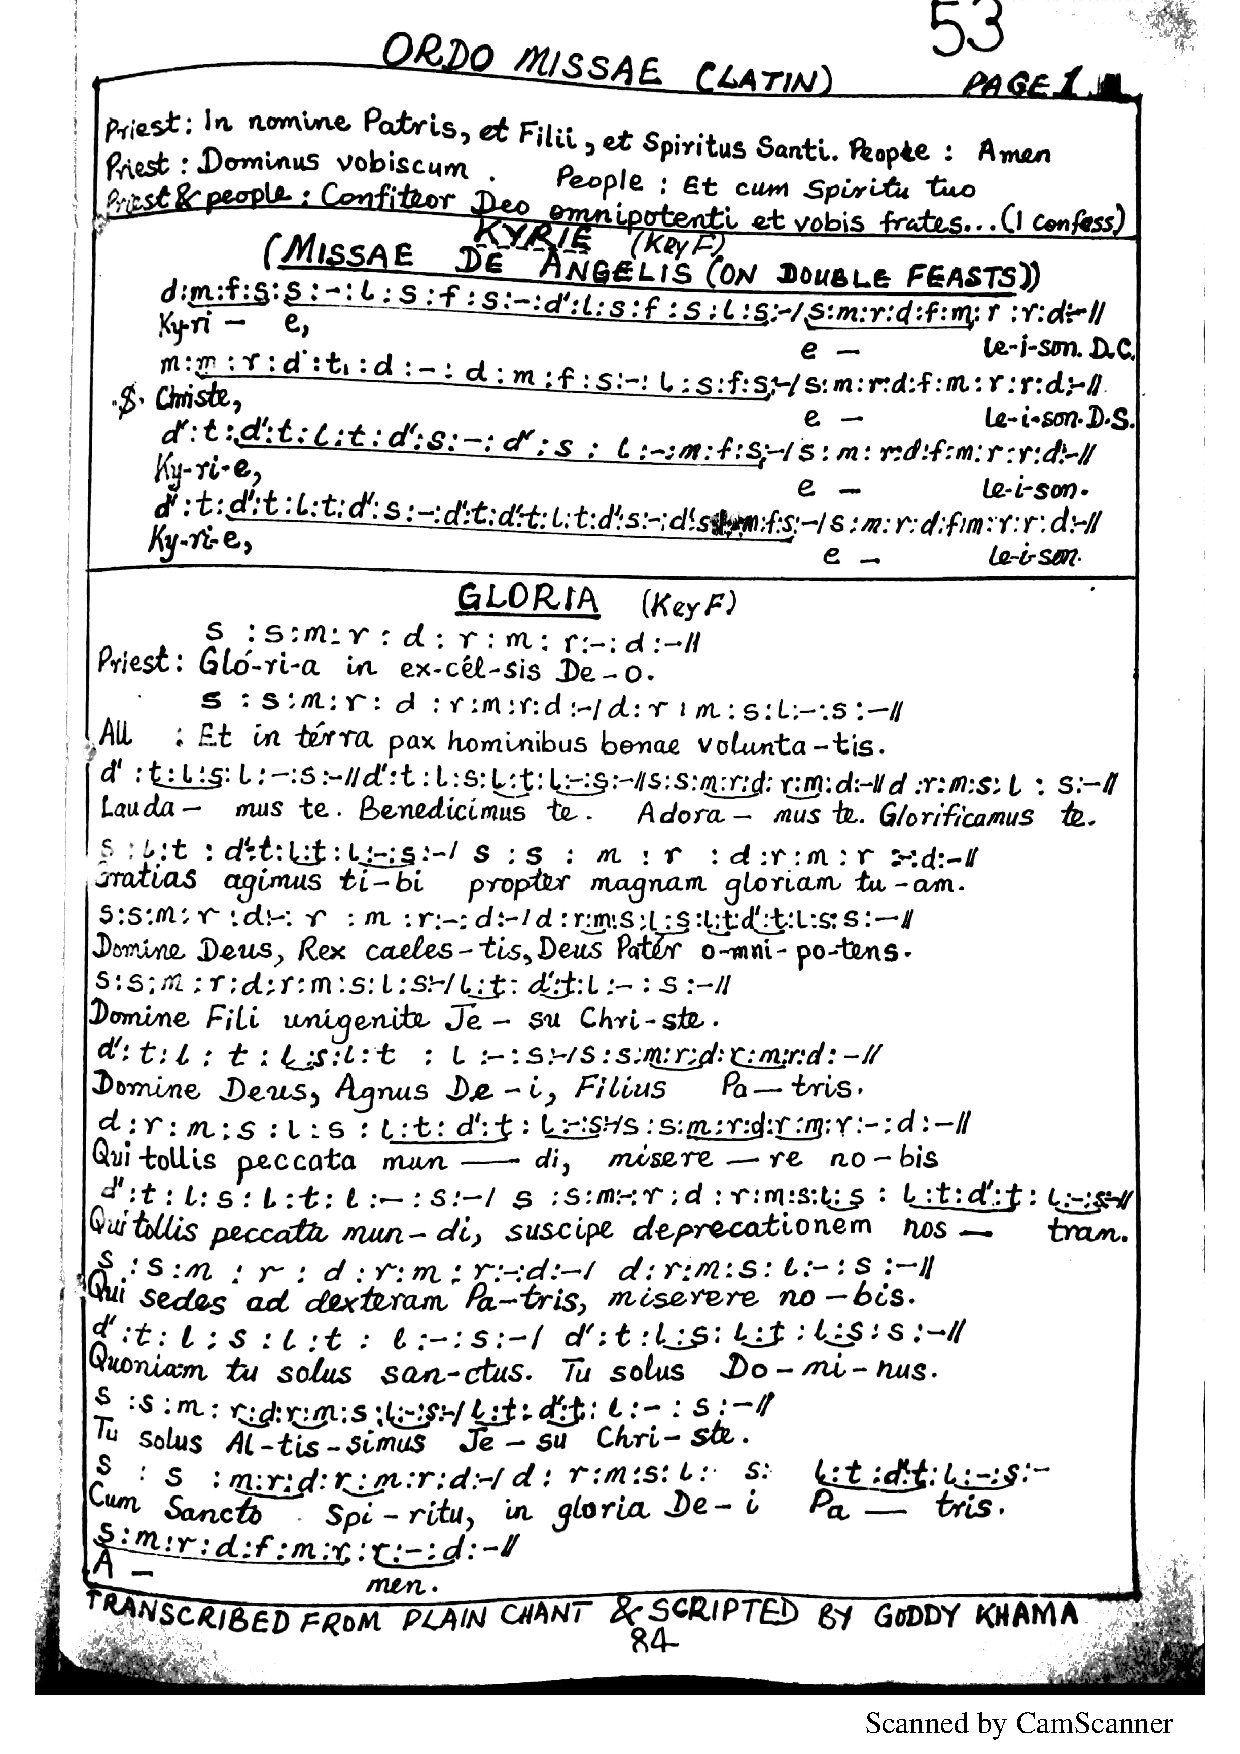 53
ORDO MISSAE (LATIN) PAGE 1
Priest: In nomine Patris, et Filii, et Spiritus Santi. People : Amen
Priest : Dominus vobiscum . People : Et cum Spiritu tuo
Priest & people : Confiteor Deo omnipotenti et vobis frates...(I confess)
KYRIE (Key F)
(MISSAE DE ANGELIS (ON DOUBLE FEASTS))
d:m:f:s:s:-:l:s:f:s:-:d':l:s:f:s:l:s:-/s:m:r:d:f:m:r:r:d:-//
Ky-ri – e, e – le-i-son. D.C.
m:m:r:d:t₁:d:-:d:m:f:s:-:l:s:f:s:-/s:m:r:d:f:m:r:r:d:-//
.$. Christe, e – le-i-son.D.S.
d':t:d':t:l:t:d':s:-:d':s:l:-:m:f:s:-/s:m:r:d:f:m:r:r:d:-//
Ky-ri-e, e – le-i-son.
d':t:d':t:l:t:d':s:-:d':t:d':t:l:t:d':s:-:d':s m:f:s:-/s:m:r:d:f:m:r:r:d:-//
Ky-ri-e, e – le-i-son.
GLORIA (Key F)
s:s:m:r:d:r:m:r:-:d:-//
Priest: Gló-ri-a in ex-cél-sis De-o.
s:s:m:r:d:r:m:r:d:-/d:r:m:s:l:-:s:-//
All : Et in térra pax hominibus bonae volunta-tis.
d':t:l:s:l:-:s:-//d':t:l:s:l:t:l:-:s:-//s:s:m:r:d:r:m:d:-//d:r:m:s:l:s:-//
Lauda– mus te. Benedicimus te. Adora– mus te. Glorificamus te.
s:l:t:d':t:l:t:l:-:s:-/s:s:m:r:d:r:m:r:-:d:-//
Gratias agimus ti-bi propter magnam gloriam tu-am.
s:s:m:r:d:-:r:m:r:-:d:-/d:r:m:s:l:s:l:t:d':t:l:s:s:-//
Domine Deus, Rex caeles-tis, Deus Patér o-mni-po-tens.
s:s:m:r:d:r:m:s:l:s:-/l:t:d':t:l:-:s:-//
Domine Fili unigenite Je-su Chri-ste.
d':t:l:t:l:s:l:t:l:-:s:-/s:s:m:r:d:r:m:r:d:-//
Domine Deus, Agnus De-i, Filius Pa—tris.
d:r:m:s:l:s:l:t:d':t:l:-:s:-/s:s:m:r:d:r:m:r:-:d:-//
Qui tollis peccata mun —— di, misere — re no-bis
d':t:l:s:l:t:l:-:s:-/s:s:m:-:r:d:r:m:s:l:s:l:t:d':t:l:-:s:-//
Qui tollis peccata mun-di, suscipe deprecationem nos — tram.
s:s:m:r:d:r:m:r:-:d:-/d:r:m:s:l:-:s:-//
Qui sedes ad dexteram Pa-tris, miserere no-bis.
d':t:l:s:l:t:l:-:s:-/d':t:l:s:l:t:l:s:s:-//
Quoniam tu solus san-ctus. Tu solus Do-mi-nus.
s:s:m:r:d:r:m:s:l:-:s:-/l:t:d':t:l:-:s:-//
Tu solus Al-tis-simus Je-su Chri-ste.
s:s:m:r:d:r:m:r:d:-/d:r:m:s:l:s:l:t:d':t:l:-:s:-
Cum Sancto Spi-ritu, in gloria De-i Pa — tris.
s:m:r:d:f:m:r:r:-:d:-//
A – men.
TRANSCRIBED FROM PLAIN CHANT & SCRIPTED BY GODDY KHAMA
84
Scanned by CamScanner